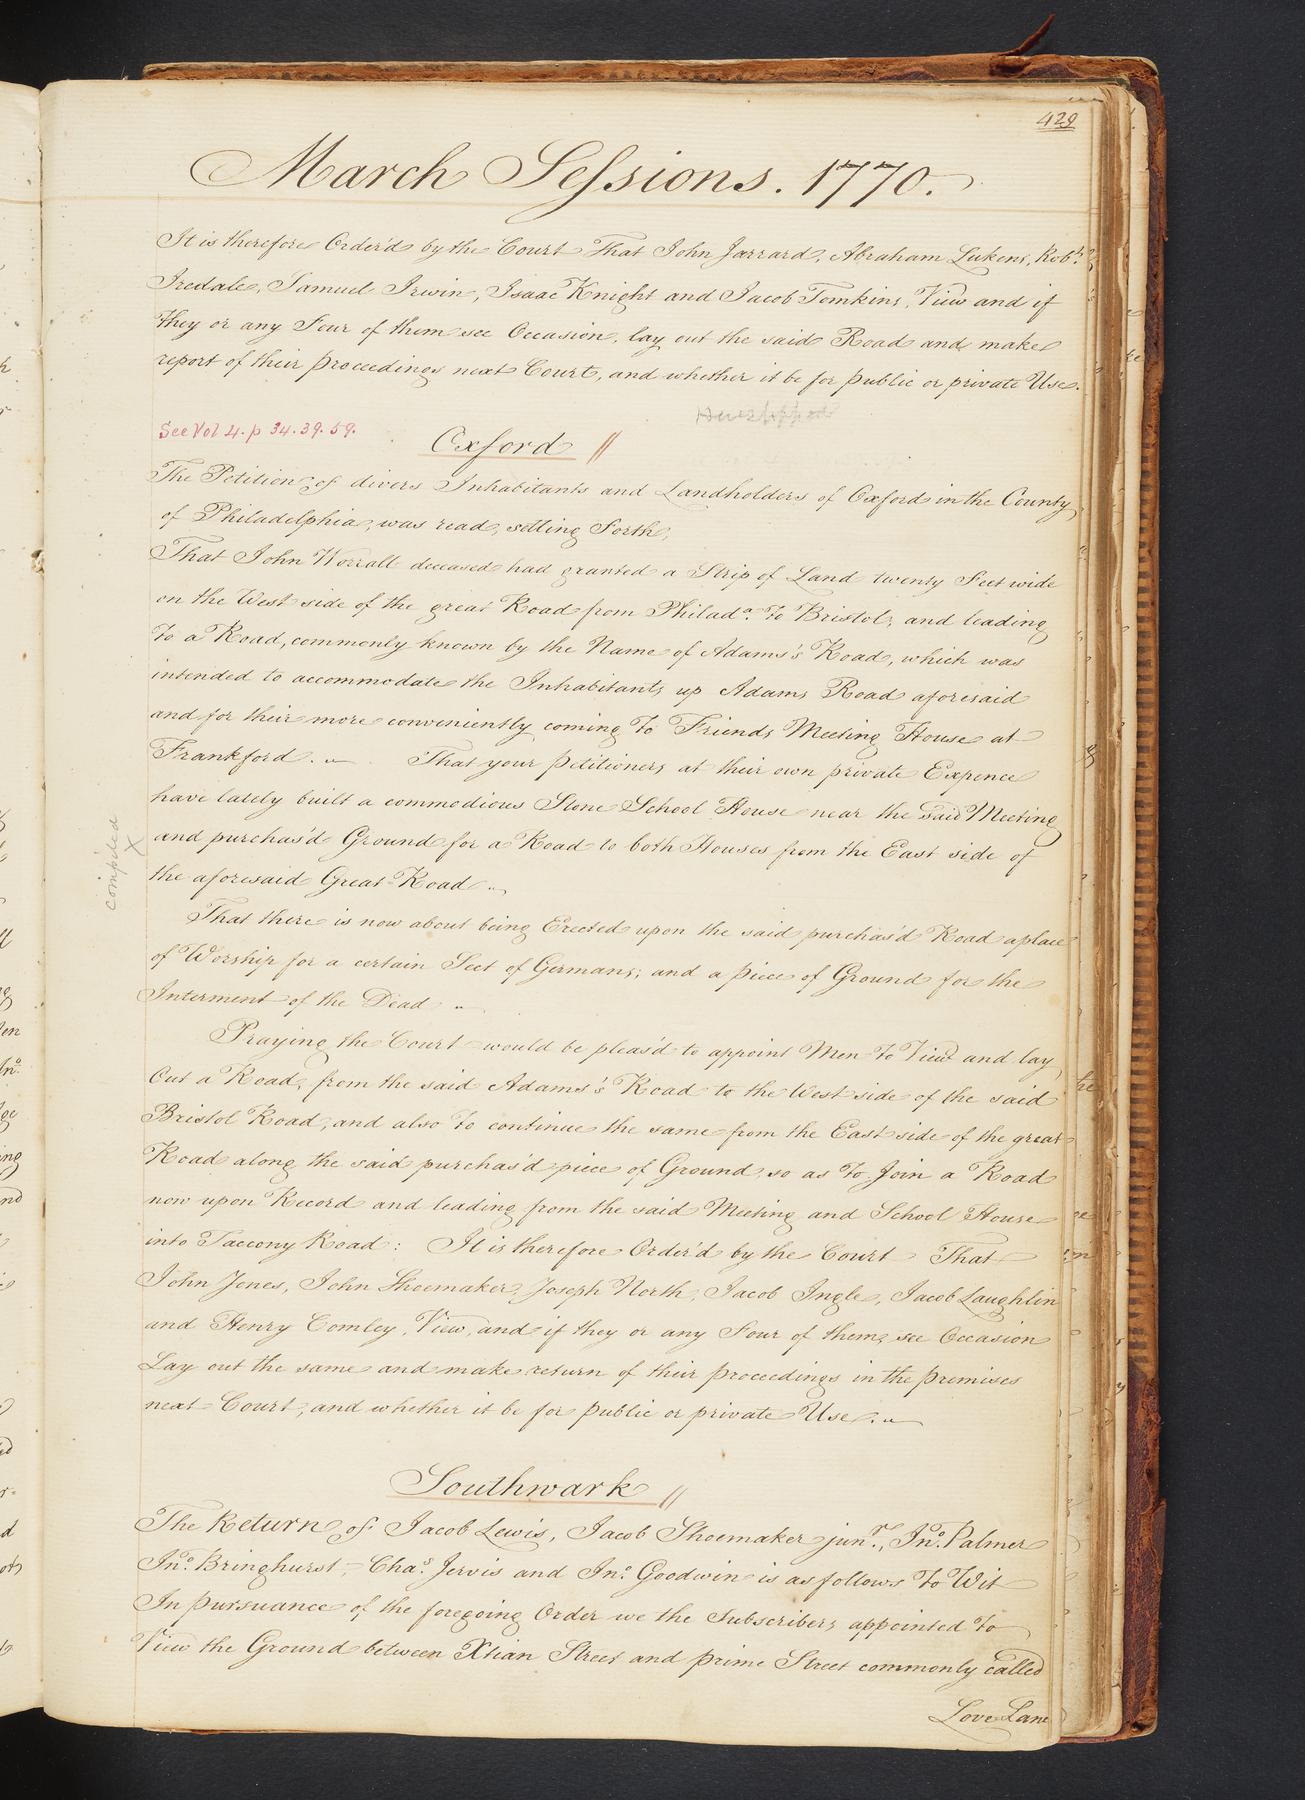 429
March Sessions. 1770.
It is therefore Order'd by the Court That John Jarrard, Abraham Lukens, Robt.
Iredale, Samuel Irwin, Isaac Knight and Jacob Tomkins, View and if
they or any Four of them see Occasion, lay out the said Road and make
report of their proceedings next Court, and whether it be for public or private Use.
See Vol 4. p 34. 39. 59.
Oxford //
The Petition of divers Inhabitants and Landholders of Oxford in the County
of Philadelphia, was read, setting Forth,
That John Worrall deceased had granted a Strip of Land twenty Feet wide
on the West side of the great Road from Philada. To Bristol, and leading
To a Road, commonly known by the Name of Adams's Road, which was
intended to accommodate the Inhabitants up Adams Road aforesaid
and for their more conveniently coming To Friends Meeting House at
Frankford. That your petitioners at their own private Expence
have lately built a commodious Stone School House near the said Meeting
and purchas'd Ground for a Road to both Houses from the East side of
the aforesaid Great Road
compiled X
That there is now about being Erected upon the said purchas'd Road a place
of Worship for a certain Sect of Germans; and a piece of Ground for the
Interment of the Dead
Praying the Court would be pleas'd to appoint Men To View and lay
Out a Road, from the said Adams's Road to the West side of the said
Bristol Road, and also To continue the same from the East side of the great
Road along the said purchas'd piece of Ground, so as To Join a Road
now upon Record and leading from the said Meeting and School House
into Taccony Road: It is therefore Order'd by the Court That
John Jones, John Shoemaker, Joseph North, Jacob Ingle, Jacob Laughlin
and Henry Comley, View, and if they or any Four of them, see Occasion
Lay out the same and make return of their proceedings in the premises
next Court, and whether it be for public or private Use.
Southwark //
The Return of Jacob Lewis, Jacob Shoemaker junr., Jno. Palmer
Jno. Bringhurst, Chas. Jervis and Jno. Goodwin is as follows To Wit
In pursuance of the foregoing Order we the Subscribers appointed To
View the Ground between Xtian Street and prime Street commonly called
Love Lane